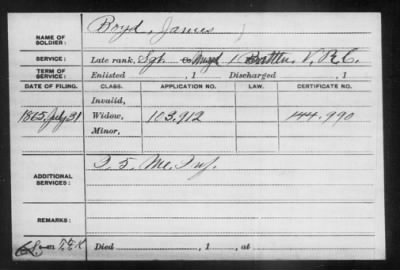 Boyd, James
NAME OF SOLDIER:
SERVICE: Late rank, Sgt. 1 Battln. V. R. C.
TERM OF SERVICE: Enlisted , 1 Discharged , 1
DATE OF FILING. CLASS. APPLICATION NO. LAW. CERTIFICATE NO.
Invalid,
1865, July 31 Widow, 103.912 144.990
Minor,
ADDITIONAL SERVICES: I 5. Me. Inf.
REMARKS:
Died , 1 , at